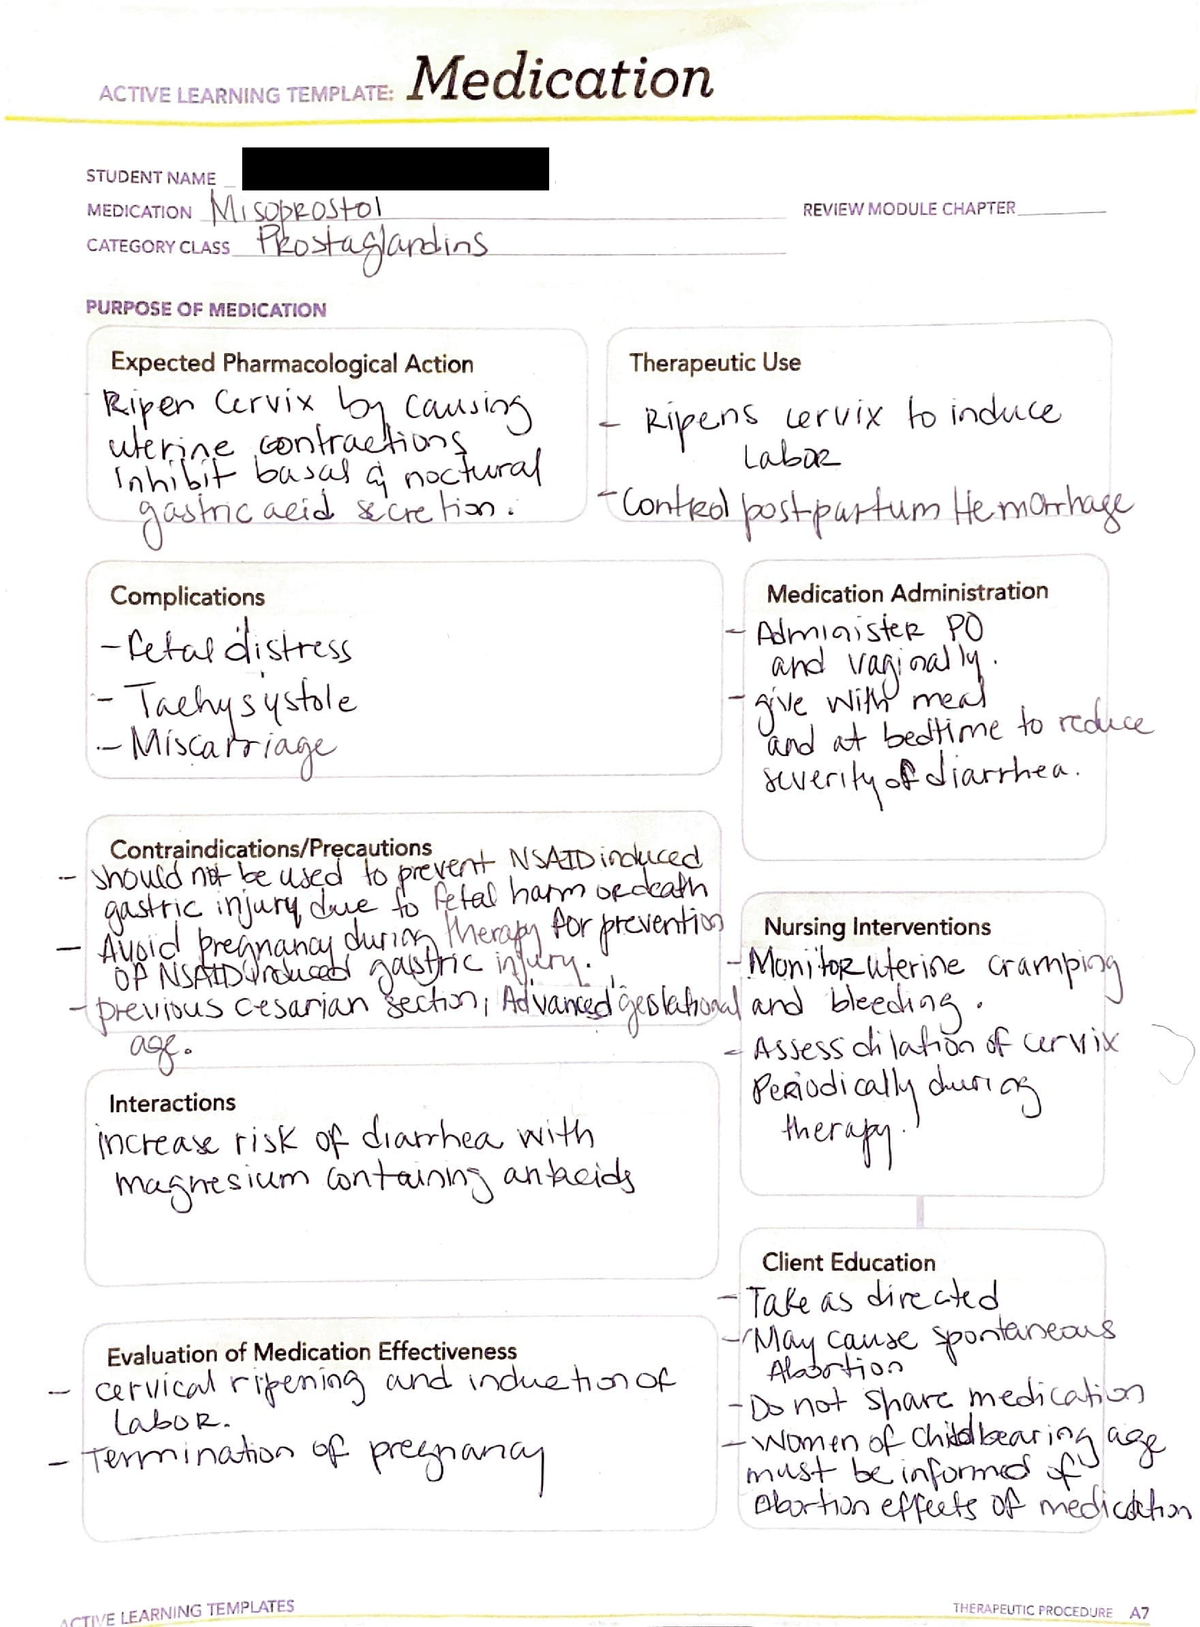 ACTIVE LEARNING TEMPLATE: Medication
STUDENT NAME
MEDICATION Misoprostol
REVIEW MODULE CHAPTER
CATEGORY CLASS Prostaglandins
PURPOSE OF MEDICATION
Expected Pharmacological Action
Ripen Cervix by causing
uterine contractions
Inhibit basal & noctural
gastric acid secretion.
Therapeutic Use
- Ripens cervix to induce
Labor
- Control postpartum Hemorrhage
Complications
- Fetal distress
- Tachysystole
- Miscarriage
Medication Administration
- Administer PO
and vaginally.
- give with meal
and at bedtime to reduce
severity of diarrhea.
Contraindications/Precautions
- should not be used to prevent NSAID induced
gastric injury due to fetal harm or death
- Avoid pregnancy during therapy for prevention
of NSAID induced gastric injury.
- previous cesarian section, Advanced gestational
age.
Nursing Interventions
- Monitor uterine cramping
and bleeding.
- Assess dilation of cervix
Periodically during
therapy.
Interactions
increase risk of diarrhea with
magnesium containing antacids
Client Education
- Take as directed
- May cause spontaneous
Abortion
- Do not share medication
- Women of Childbearing age
must be informed of
Abortion effects of medication
Evaluation of Medication Effectiveness
- cervical ripening and induction of
labor.
- Termination of pregnancy
ACTIVE LEARNING TEMPLATES
THERAPEUTIC PROCEDURE A7